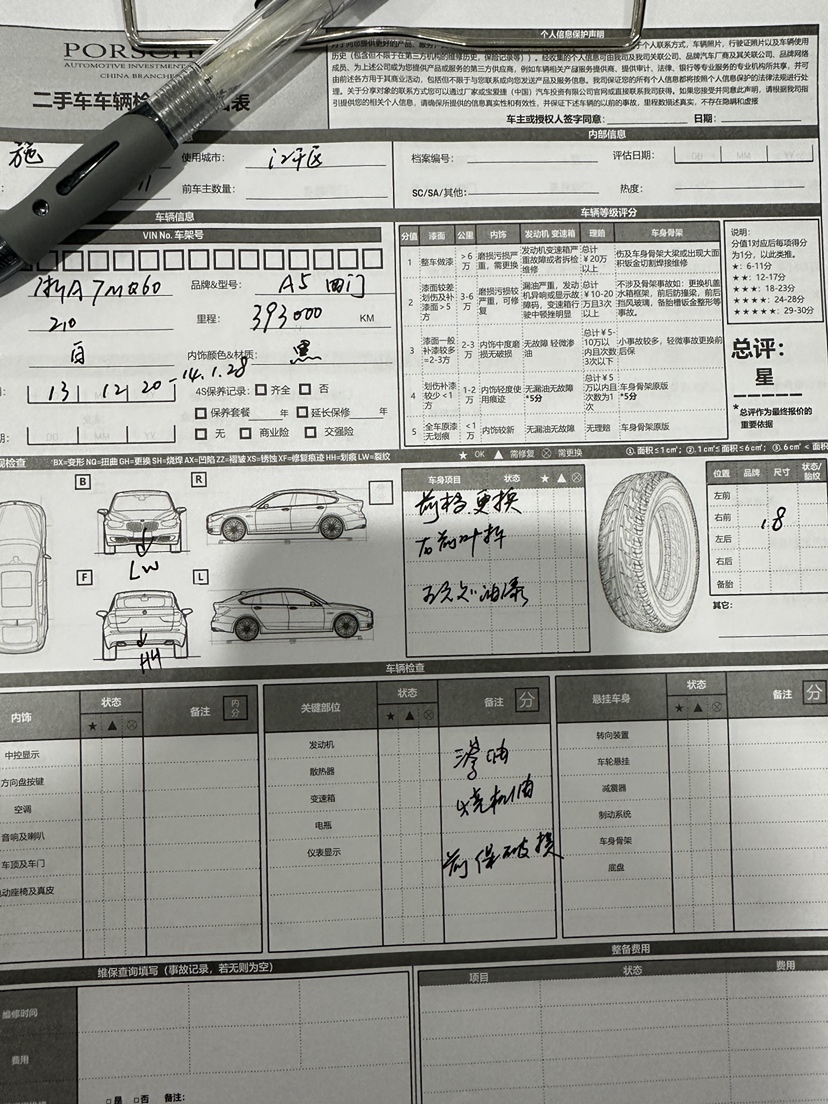 PORSCHE
AUTOMOTIVE INVESTMENT
CHINA BRANCHES
二手车车辆检 表
个人信息保护声明
历史（包含但不限于在第三方机构的维修历史，保险记录等）。经收集的个人信息可由我司及我司关联公司、品牌汽车厂商及其关联公司、品牌网络
成员、为上述公司或为您提供产品或服务的第三方供应商，例如车辆相关产品服务提供商、提供审计，法律，银行等专业服务的专业机构所共享，并可
由前述各方用于其商业活动，包括但不限于与您联系或向您发送产品及服务信息。我司保证您的所有个人信息都将按照个人信息保护的法律法规进行处
理。关于分享对象的联系方式可以通过厂家或宝爱捷（中国）汽车投资有限公司官网或直接联系我司获得。如果您接受并同意此声明，请根据我司指
引提供您的相关个人信息，请确保所提供的信息真实性和有效性，并保证下述车辆的以前的事故，里程数描述真实，不存在隐瞒和虚报
车主或授权人签字同意： 日期：
内部信息
施 使用城市： 江干区
档案编号： 评估日期： DD MM YY
11 前车主数量：
SC/SA/其他： 热度：
车辆信息
VIN No. 车架号
浙A7MQ60 品牌&型号： A5 四门
210 里程： 393000 KM
白 内饰颜色&材质： 黑
13 12 20 - 14.1.28 4S保养记录： 齐全 否
保养套餐 年 延长保修 年
无 商业险 交强险
车辆等级评分
分值 漆面 公里 内饰 发动机 变速箱 理赔 车身骨架
1 整车做漆 > 6万 磨损污损严重，需更换 发动机变速箱严重故障或者拆检维修 总计￥20万以上 伤及车身骨架大梁或出现大面积钣金切割焊接维修
2 漆面较差划伤及补漆面＞5方 3-6万 磨损污损较严重，可修复 漏油严重，发动机异响或显示故障码，变速箱行驶中顿挫明显 总计￥10-20万且3次以上 不涉及骨架事故如：更换机盖水箱框架，前后防撞梁，前挡风玻璃，备胎槽钣金整形等事故。
3 漆面一般补漆较多=2-3方 2-3万 内饰中度磨损无破损 无故障 轻微渗油 总计￥5-10万以内且次数3次以下 小事故较多，轻微事故更换前后保
4 划伤补漆较少<1方 1-2万 内饰轻度使用痕迹 无漏油无故障*5分 总计￥5万以内且次数为1次 车身骨架原版*5分
5 全车原漆无划痕 <1万 内饰较新 无漏油无故障 无理赔 车身骨架原版
说明：
分值1对应后每项得分为1分，以此类推。
★：6-11分
★★：12-17分
★★★：18-23分
★★★★：24-28分
★★★★★：29-30分
总评：
星
*总评作为最终报价的重要依据
★ OK ▲ 需修复 ⊗ 需更换
观检查 *BX=变形 NQ=扭曲 GH=更换 SH=烧焊 AX=凹陷 ZZ=褶皱 XS=锈蚀 XF=修复痕迹 HH=划痕 LW=裂纹
B R
LW
F L
HH
车身项目 状态 ★ ▲ ⊗
前档更换
右前叶拆
位置 品牌 尺寸 状态/胎纹
左前
右前
左后
右后
备胎
.8
其它：
车辆检查
内饰 状态 ★ ▲ ⊗ 备注 内分
中控显示
方向盘按键
空调
音响及喇叭
车顶及车门
电动座椅及真皮
关键部位 状态 ★ ▲ ⊗ 备注 分
发动机
散热器
变速箱
电瓶
仪表显示
渗油
烧机油
前保破损
悬挂车身 状态 ★ ▲ ⊗ 备注 分
转向装置
车轮悬挂
减震器
制动系统
车身骨架
底盘
维保查询填写（事故记录，若无则为空）
维修时间
费用
是 否 备注：
整备费用
项目 状态 费用